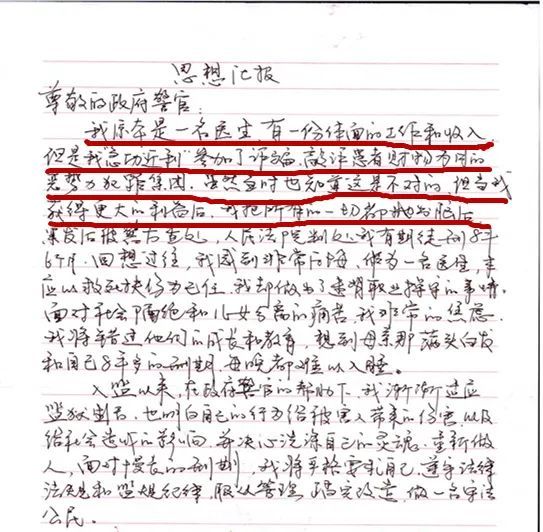 思想汇报
尊敬的政府警官：
我原本是一名医生，有一份体面的工作和收入，
但是我“急功近利”参加了诈骗、敲诈患者财物为目的
恶势力犯罪集团，虽然当时也知道这是不对的，但当我
获得更大的利益后，我把所有的一切都抛于脑后，
案发后被警方查处，人民法院判处我有期徒刑8年
6个月。回想过往，我感到非常后悔，做为一名医生，本
应以救死扶伤为己任，我却做出了违背职业操守的事情。
面对社会隔绝和儿女分离的痛苦，我非常的焦虑
我将错过他们的成长和教育，想到母亲那满头白发
和自己8年多的刑期，每晚都难以入睡。
入监以来，在政府警官的帮助下，我渐渐适应
监狱生活，也明白自己的行为给被害人带来的伤害，以及
给社会造成的影响，并决心洗涤自己的灵魂，重新做
人，面对漫长的刑期，我将严格要求自己，遵守法律
法规和监规纪律，服从管理，踏实改造，做一名守法
公民。